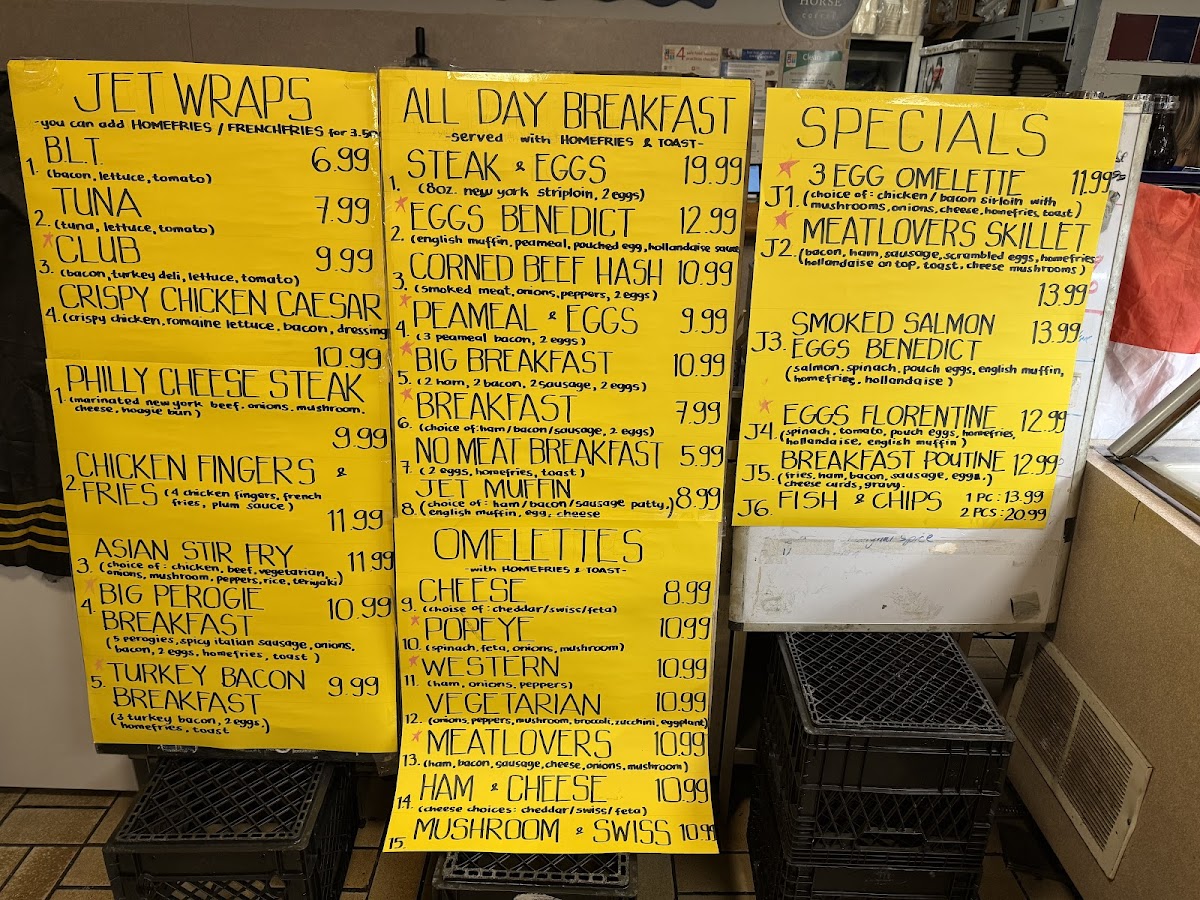 JET WRAPS
-you can add HOMEFRIES / FRENCHFRIES for 3.50
1. B.L.T. 6.99
(bacon, lettuce, tomato)
2. TUNA 7.99
(tuna, lettuce, tomato)
3. CLUB 9.99
(bacon, turkey deli, lettuce, tomato)
4. CRISPY CHICKEN CAESAR
(crispy chicken, romaine lettuce, bacon, dressing
10.99
1. PHILLY CHEESE STEAK
(marinated new york beef, onions, mushroom,
cheese, hoagie bun)
9.99
2. CHICKEN FINGERS &
FRIES (4 chicken fingers, french
fries, plum sauce)
11.99
3. ASIAN STIR FRY 11.99
(choice of: chicken, beef, vegetarian,
onions, mushroom, peppers, rice, teriyaki)
4. BIG PEROGIE 10.99
BREAKFAST
(5 perogies, spicy italian sausage, onions,
bacon, 2 eggs, homefries, toast)
5. TURKEY BACON 9.99
BREAKFAST
(3 turkey bacon, 2 eggs,)
homefries, toast
ALL DAY BREAKFAST
-served with HOMEFRIES & TOAST-
1. STEAK & EGGS 19.99
(8oz. new york striploin, 2 eggs)
2. EGGS BENEDICT 12.99
(english muffin, peameal, pouched egg, hollandaise sauce
3. CORNED BEEF HASH 10.99
(smoked meat, onions, peppers, 2 eggs)
4. PEAMEAL & EGGS 9.99
(3 peameal bacon, 2 eggs)
5. BIG BREAKFAST 10.99
(2 ham, 2 bacon, 2 sausage, 2 eggs)
6. BREAKFAST 7.99
(choice of: ham/bacon/sausage, 2 eggs)
7. NO MEAT BREAKFAST 5.99
(2 eggs, homefries, toast)
8. JET MUFFIN 8.99
(choice of: ham/bacon/sausage patty,
english muffin, egg, cheese
OMELETTES
-with HOMEFRIES & TOAST-
9. CHEESE 8.99
(choise of: cheddar/swiss/feta)
10. POPEYE 10.99
(spinach, feta, onions, mushroom)
11. WESTERN 10.99
(ham, onions, peppers)
12. VEGETARIAN 10.99
(onions, peppers, mushroom, broccoli, zucchini, eggplant)
13. MEATLOVERS 10.99
(ham, bacon, sausage, cheese, onions, mushroom)
14. HAM & CHEESE 10.99
(cheese choices: cheddar/swiss/feta)
15. MUSHROOM & SWISS 10.99
SPECIALS
J1. 3 EGG OMELETTE 11.99
(choice of: chicken/bacon sirloin with
mushrooms, onions, cheese, homefries, toast)
J2. MEATLOVERS SKILLET
(bacon, ham, sausage, scrambled eggs, homefries,
hollandaise on top, toast, cheese mushrooms)
13.99
J3. SMOKED SALMON 13.99
EGGS BENEDICT
(salmon, spinach, pouch eggs, english muffin,
homefries, hollandaise)
J4. EGGS FLORENTINE 12.99
(spinach, tomato, pouch eggs, homefries,
hollandaise, english muffin)
J5. BREAKFAST POUTINE 12.99
(fries, ham, bacon, sausage, eggs,
cheese curds, gravy.
J6. FISH & CHIPS 1 PC: 13.99
2 PCS: 20.99
HORSE
4
Clean
spice